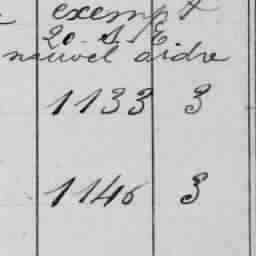 exempt
20. S. E
nouvel ordre
1133 3
1146 3